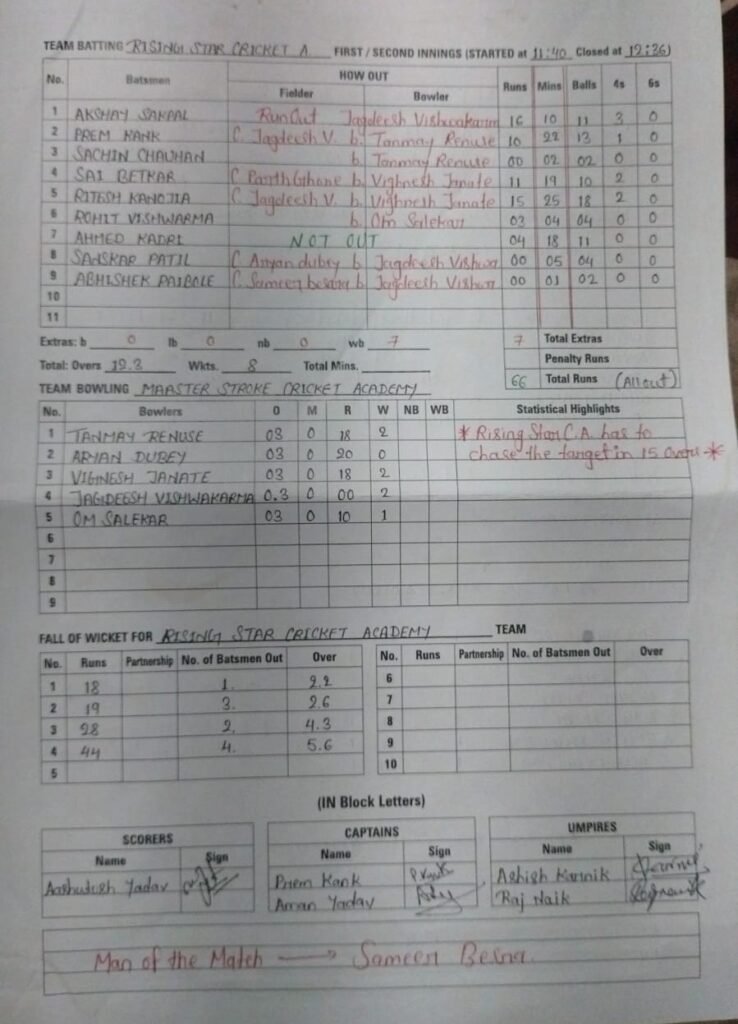 TEAM BATTING RISING STAR CRICKET A FIRST / SECOND INNINGS (STARTED at 11:40 Closed at 12:36)
No. Batsmen HOW OUT Runs Mins Balls 4s 6s
Fielder Bowler
1 AKSHAY SAKPAL Run Out Jagdeesh Vishwakarm 16 10 11 3 0
2 PREM KANK C. Jagdeesh V. b. Tanmay Renuse 10 22 13 1 0
3 SACHIN CHAUHAN b. Tanmay Renuse 00 02 02 0 0
4 SAI BETKAR C Parth Gthane b. Vighnesh Janate 11 19 10 2 0
5 RITESH KANOJIA C. Jagdeesh V. b. Vighnesh Janate 15 25 18 2 0
6 ROHIT VISHWARMA b. Om Salekar 03 04 04 0 0
7 AHMED KADRI NOT OUT 04 18 11 0 0
8 SANSKAR PATIL C Aryan dubey b Jagdeesh Vishwa 00 05 04 0 0
9 ABHISHEK PAIBOLE C Sameer besra b Jagdeesh Vishwa 00 01 02 0 0
10
11
Extras: b 0 lb 0 nb 0 wb 7 7 Total Extras
Penalty Runs
Total: Overs 12.3 Wkts. 8 Total Mins. 66 Total Runs (All out)
TEAM BOWLING MAASTER STROKE CRICKET ACADEMY
No. Bowlers O M R W NB WB Statistical Highlights
1 TANMAY RENUSE 03 0 18 2 * Rising Star C.A. has to
2 ARYAN DUBEY 03 0 20 0 chase the target in 15 overs *
3 VIGHNESH JANATE 03 0 18 2
4 JAGDEESH VISHWAKARMA 0.3 0 00 2
5 OM SALEKAR 03 0 10 1
6
7
8
9
FALL OF WICKET FOR RISING STAR CRICKET ACADEMY TEAM
No. Runs Partnership No. of Batsmen Out Over No. Runs Partnership No. of Batsmen Out Over
1 18 1. 2.2 6
2 19 3. 2.6 7
3 28 2. 4.3 8
4 44 4. 5.6 9
5 10
(IN Block Letters)
SCORERS CAPTAINS UMPIRES
Name Sign Name Sign Name Sign
Aashutosh Yadav Prem Kank Ashish Karnik
Aman Yadav Raj Naik
Man of the Match → Sameer Besra.